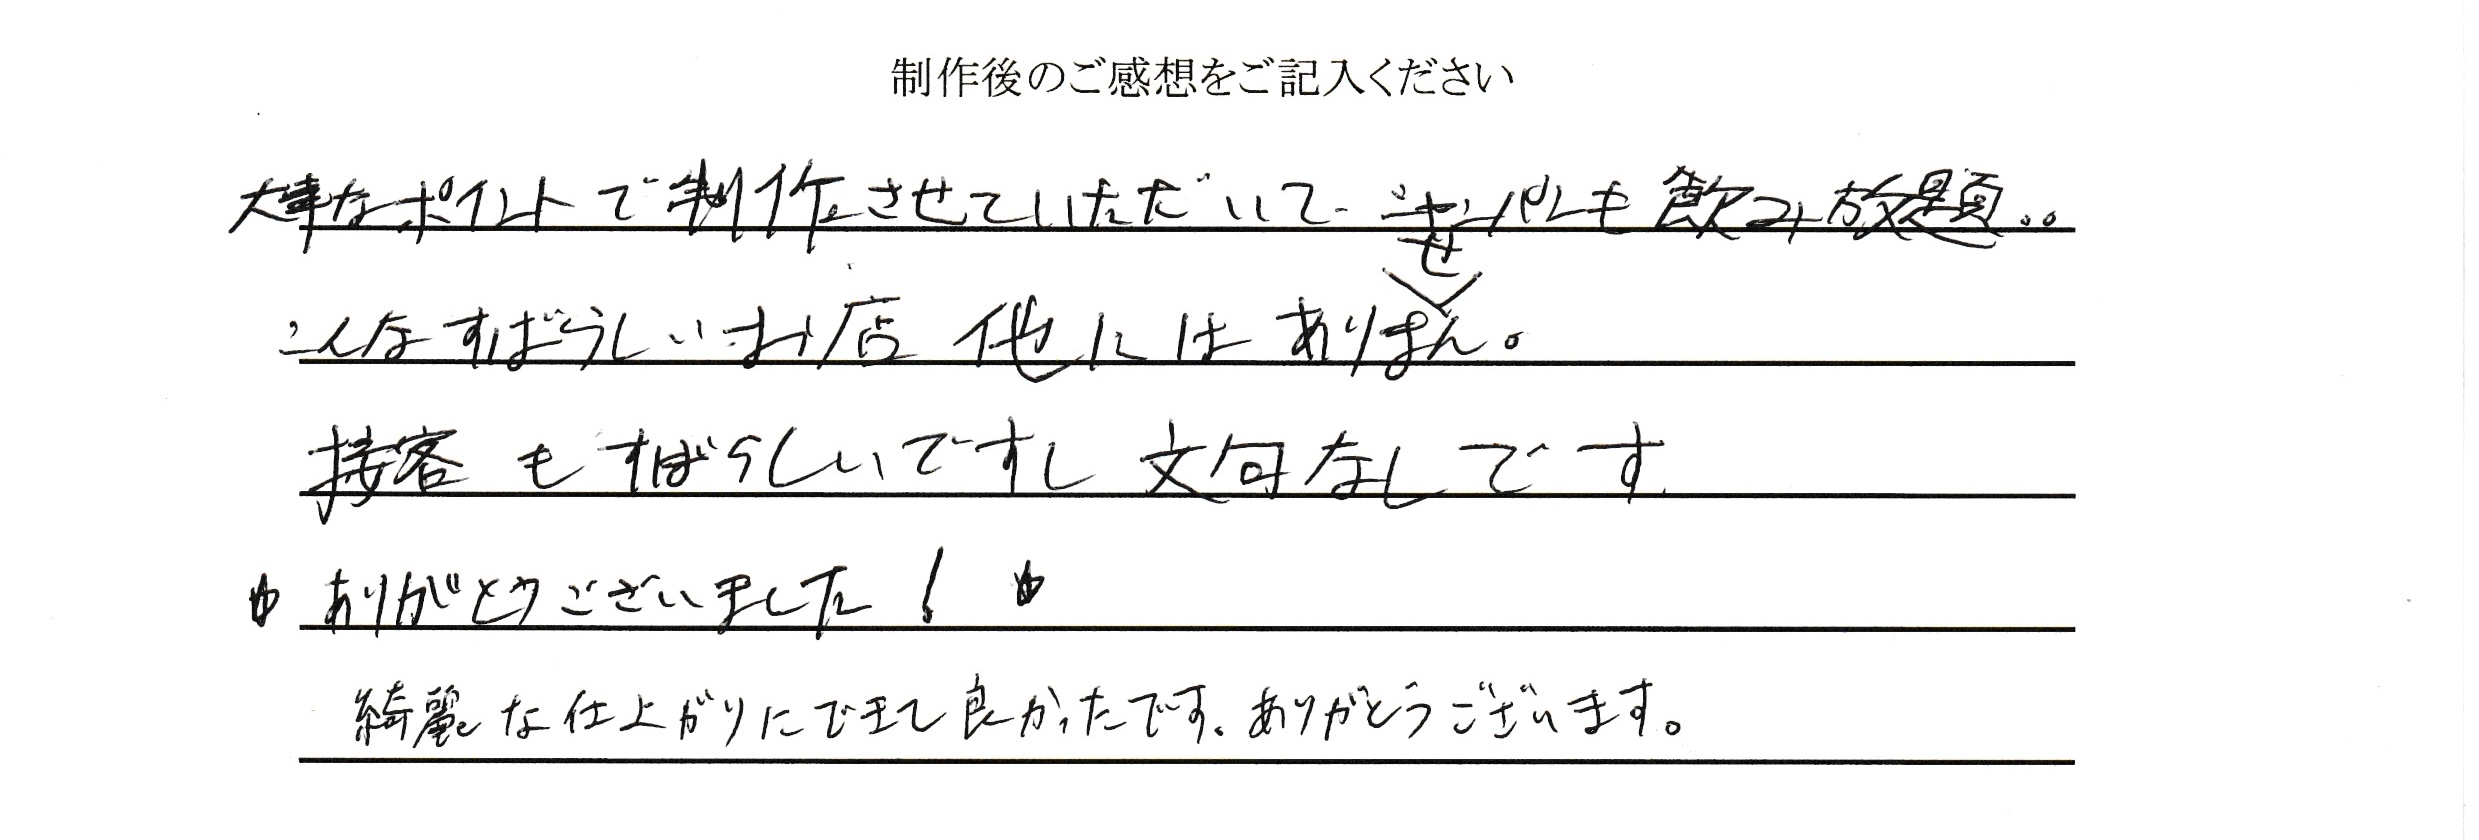 制作後のご感想をご記入ください
大事なポイントで制作させていただいて、シャンパンも飲み放題。。
こんなすばらしいお店 他にはありません。
接客もすばらしいですし 文句なしです
ありがとうございました!
綺麗な仕上がりにできて良かったです。ありがとうございます。